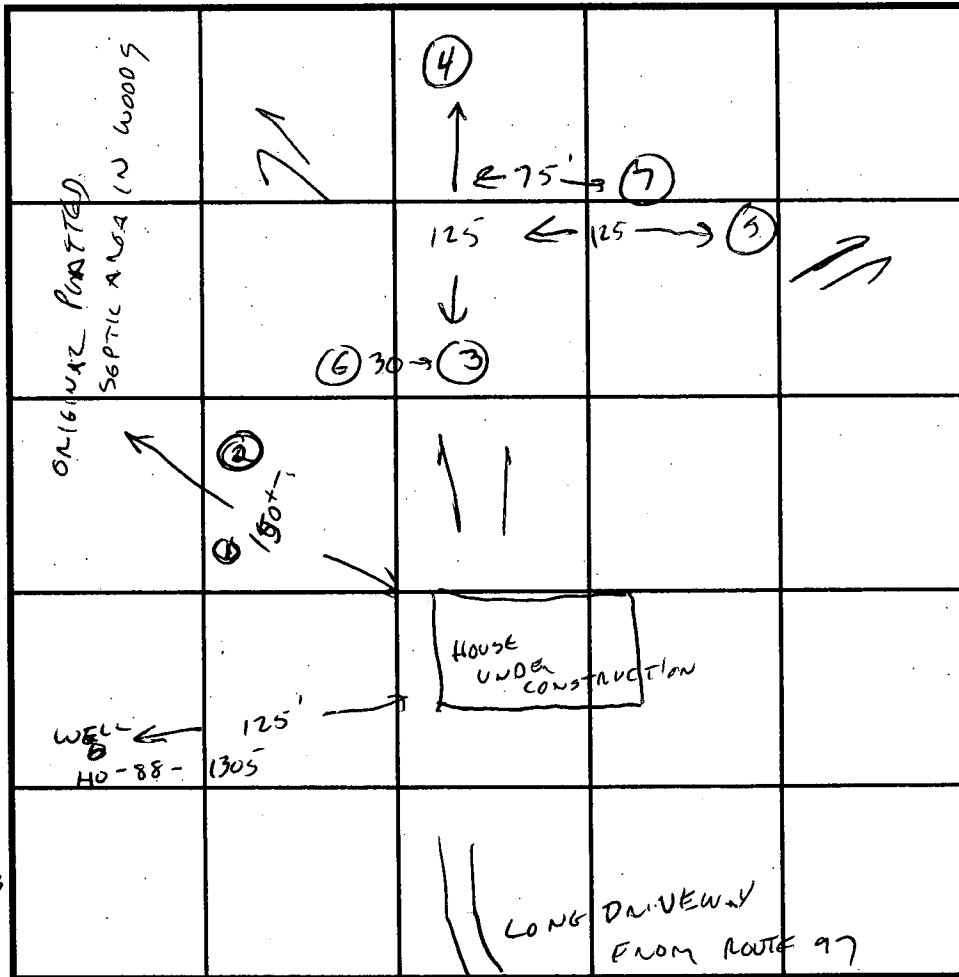 ORIGINAL PLATTED
SEPTIC AREA IN WOODS
4
75'
7
125
125
5
6
30
3
2
150+-
1
HOUSE
UNDER
CONSTRUCTION
125'
WELL
HO-88-1305
LONG DRIVEWAY
FROM ROUTE 97